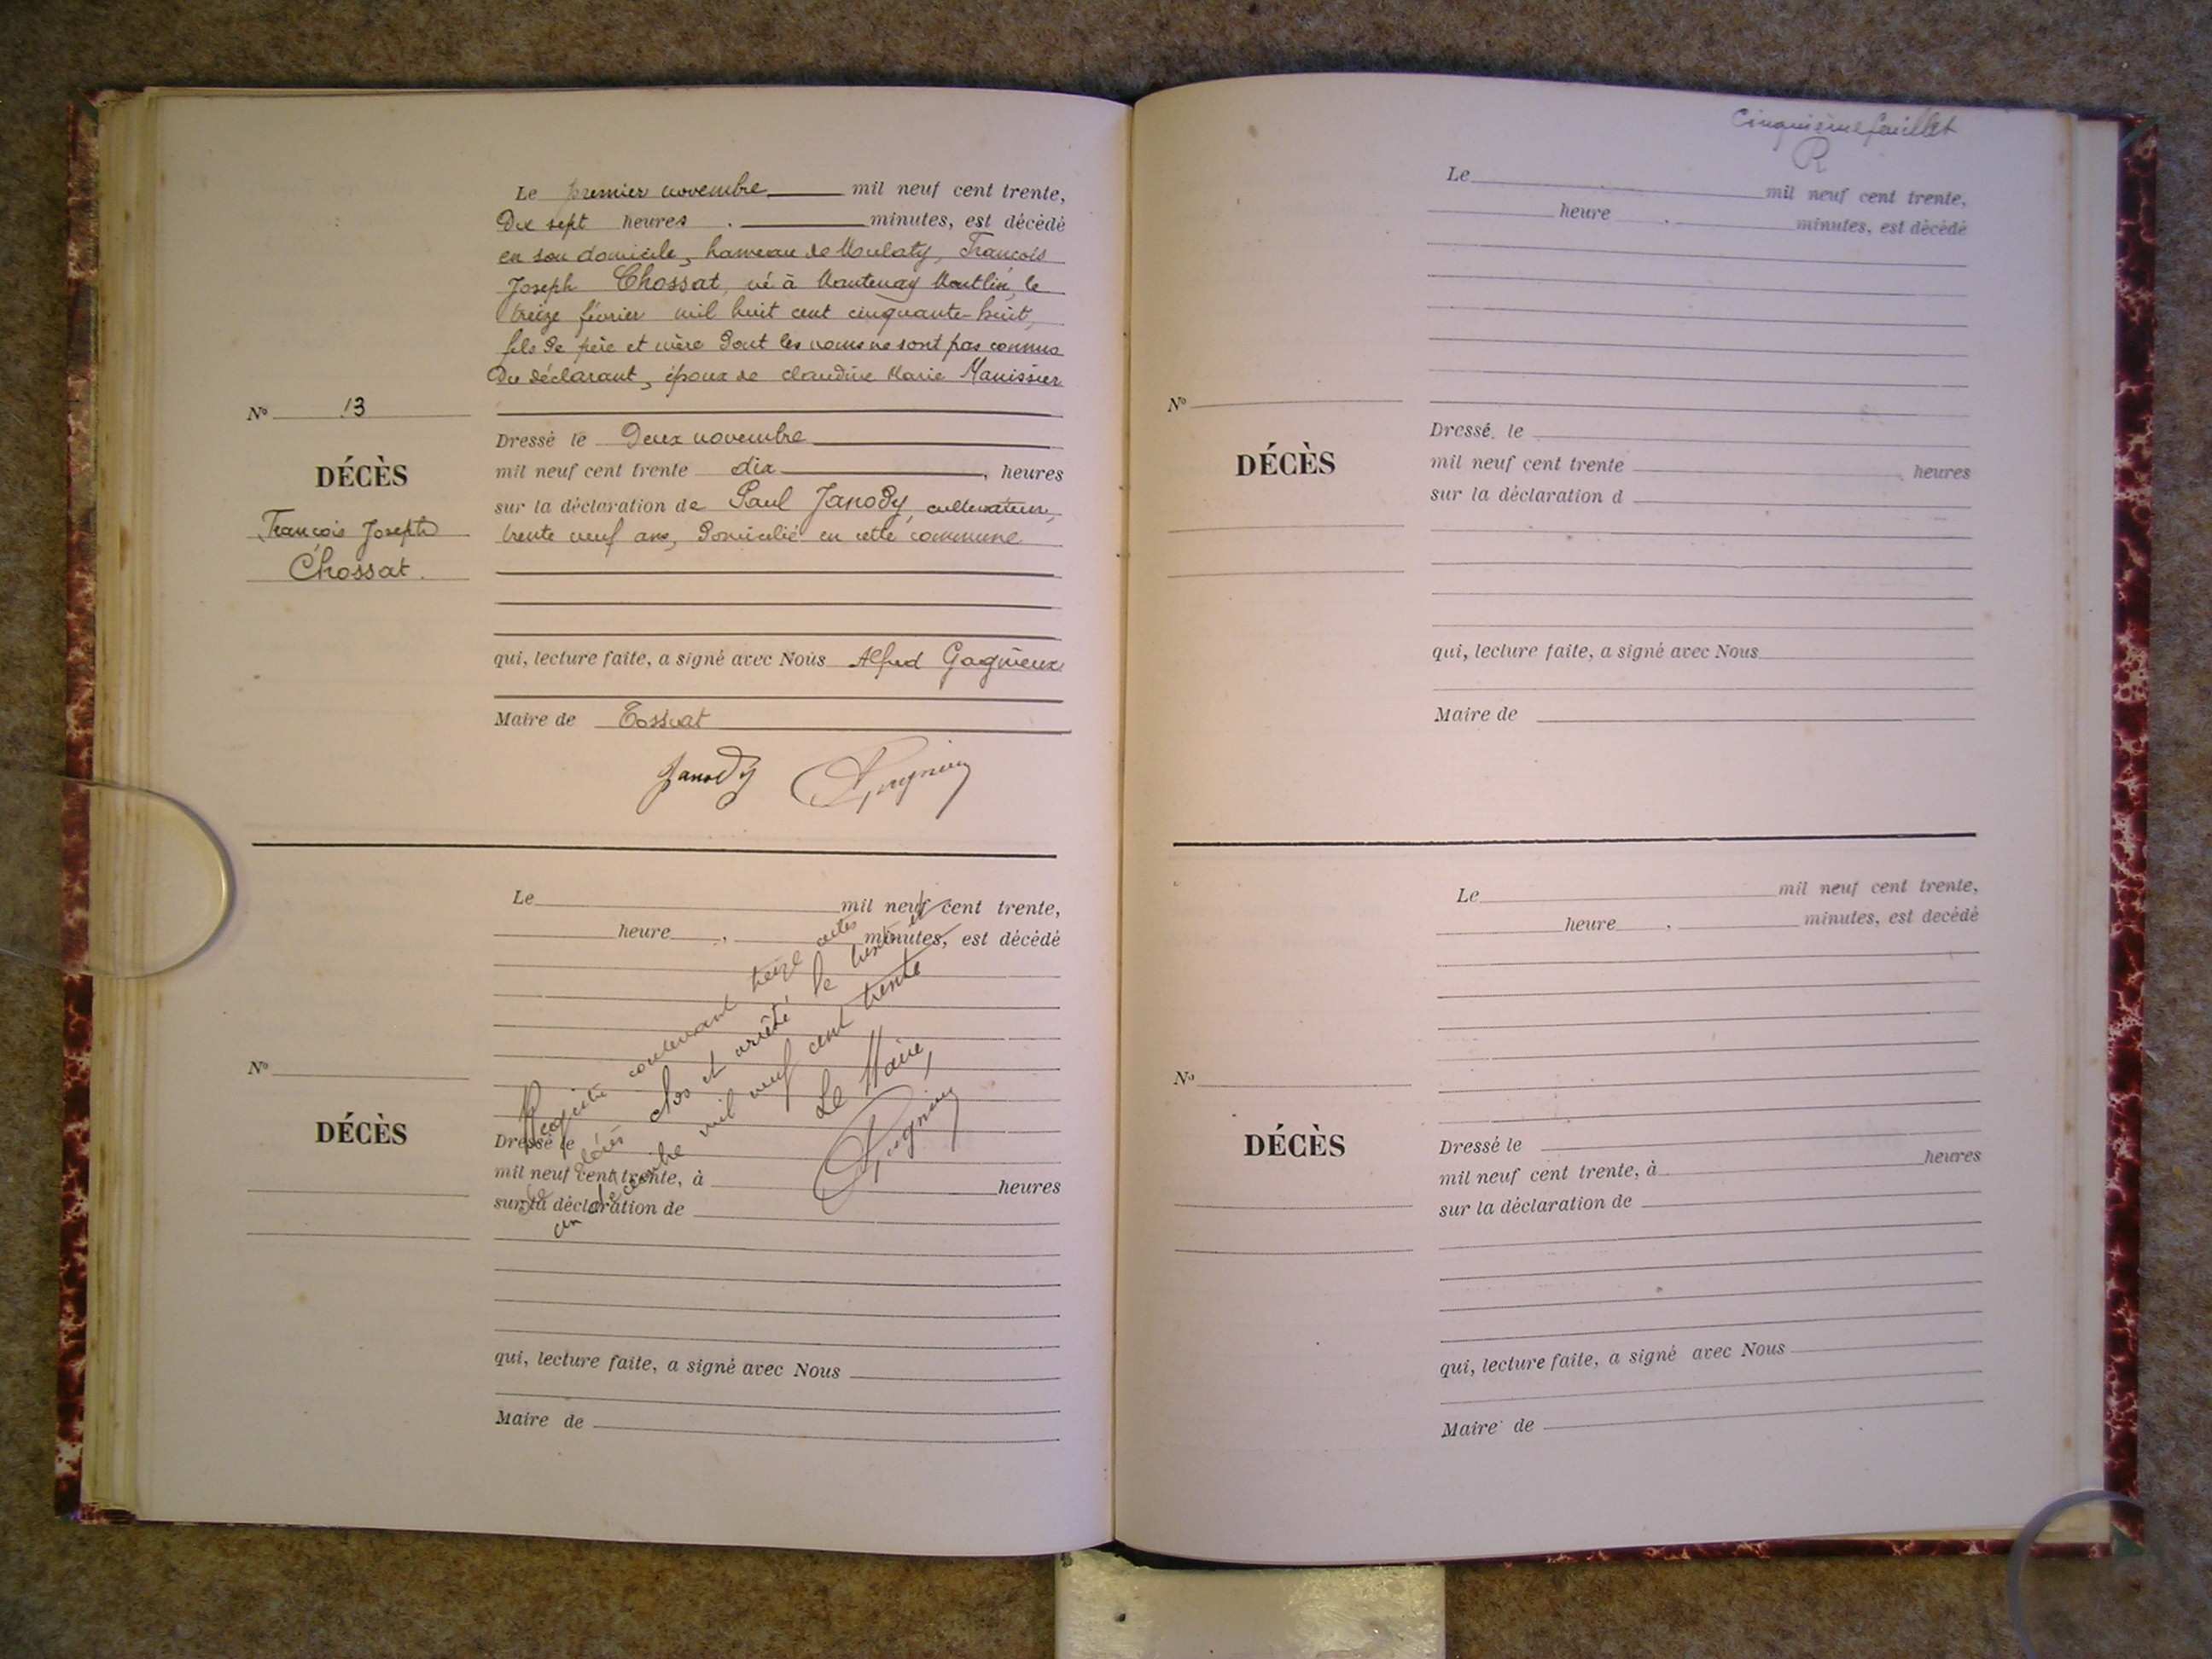 Le premier novembre mil neuf cent trente,
Dix sept heures . minutes, est décédé
en son domicile, hameau de Moulaty, François
Joseph Chossat, né à Mantenay Montlin, le
treize février mil huit cent cinquante-huit,
fils de père et mère dont les noms ne sont pas connus
Du déclarant, époux de claudine Marie Manissier
No 13
Dressé le Deux novembre
mil neuf cent trente dix , heures
DÉCÈS
sur la déclaration de Paul Janody, cultivateur,
François Joseph
trente neuf ans, Domicilié en cette commune
Chossat.
qui, lecture faite, a signé avec Nous Alfred Gagnieux
Maire de Tossiat
Janody
Le mil neuf cent trente,
heure , minutes, est décédé
No
DÉCÈS
Registre contenant treize actes
de décès clos et arrêté le trente et
un décembre mil neuf cent trente
Le Maire,
Dressé le
mil neuf cent trente, à heures
sur la déclaration de
qui, lecture faite, a signé avec Nous
Maire de
Cinquième feuillet
R
Le mil neuf cent trente,
heure . minutes, est décédé
No
Dressé le
DÉCÈS
mil neuf cent trente , heures
sur la déclaration d
qui, lecture faite, a signé avec Nous
Maire de
Le mil neuf cent trente,
heure , minutes, est decédé
No
DÉCÈS
Dressé le
mil neuf cent trente, à heures
sur la déclaration de
qui, lecture faite, a signé avec Nous
Maire de